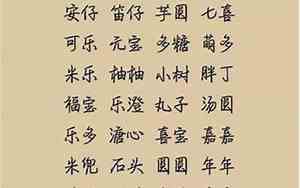 安仔 笛仔 芋圆 七喜
可乐 元宝 多糖 萌多
米乐 柚柚 小树 胖丁
福宝 乐澄 丸子 汤圆
乐多 溏心 喜宝 嘉嘉
米兜 石头 圆圆 年年